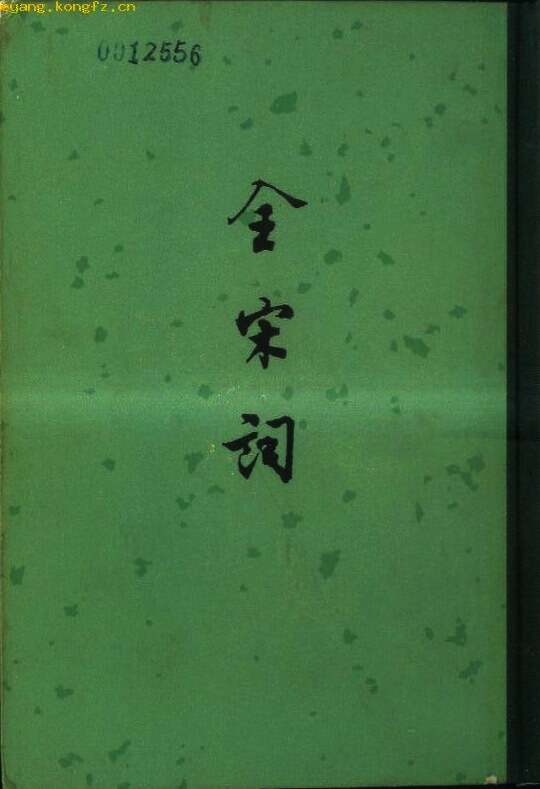 syang.kongfz.cn
0012556
全
宋
词